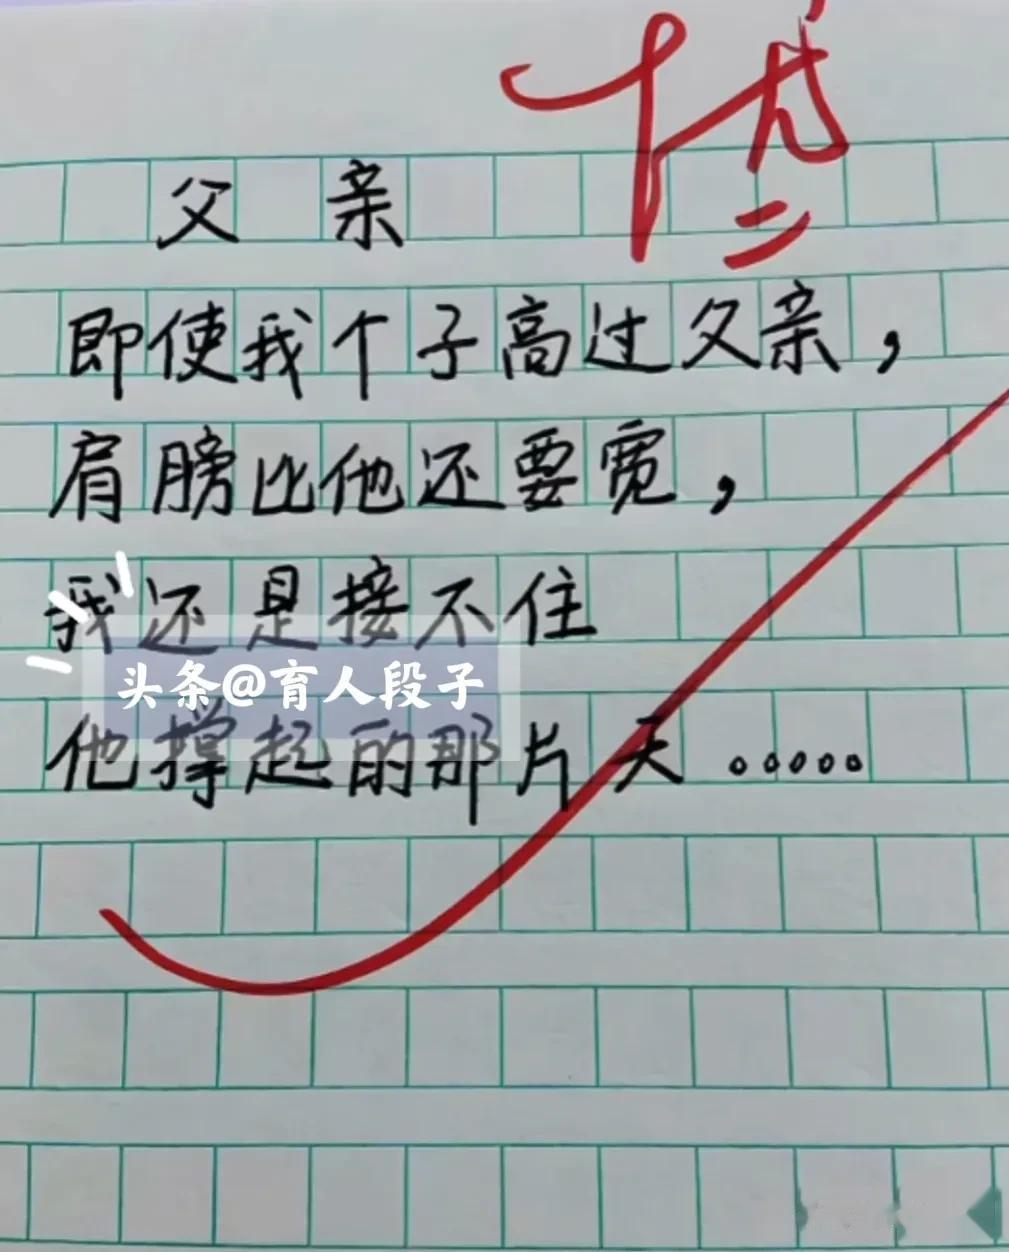 优
父亲
即使我个子高过父亲，
肩膀比他还要宽，
我还是接不住
头条@育人段子
他撑起的那片天.....